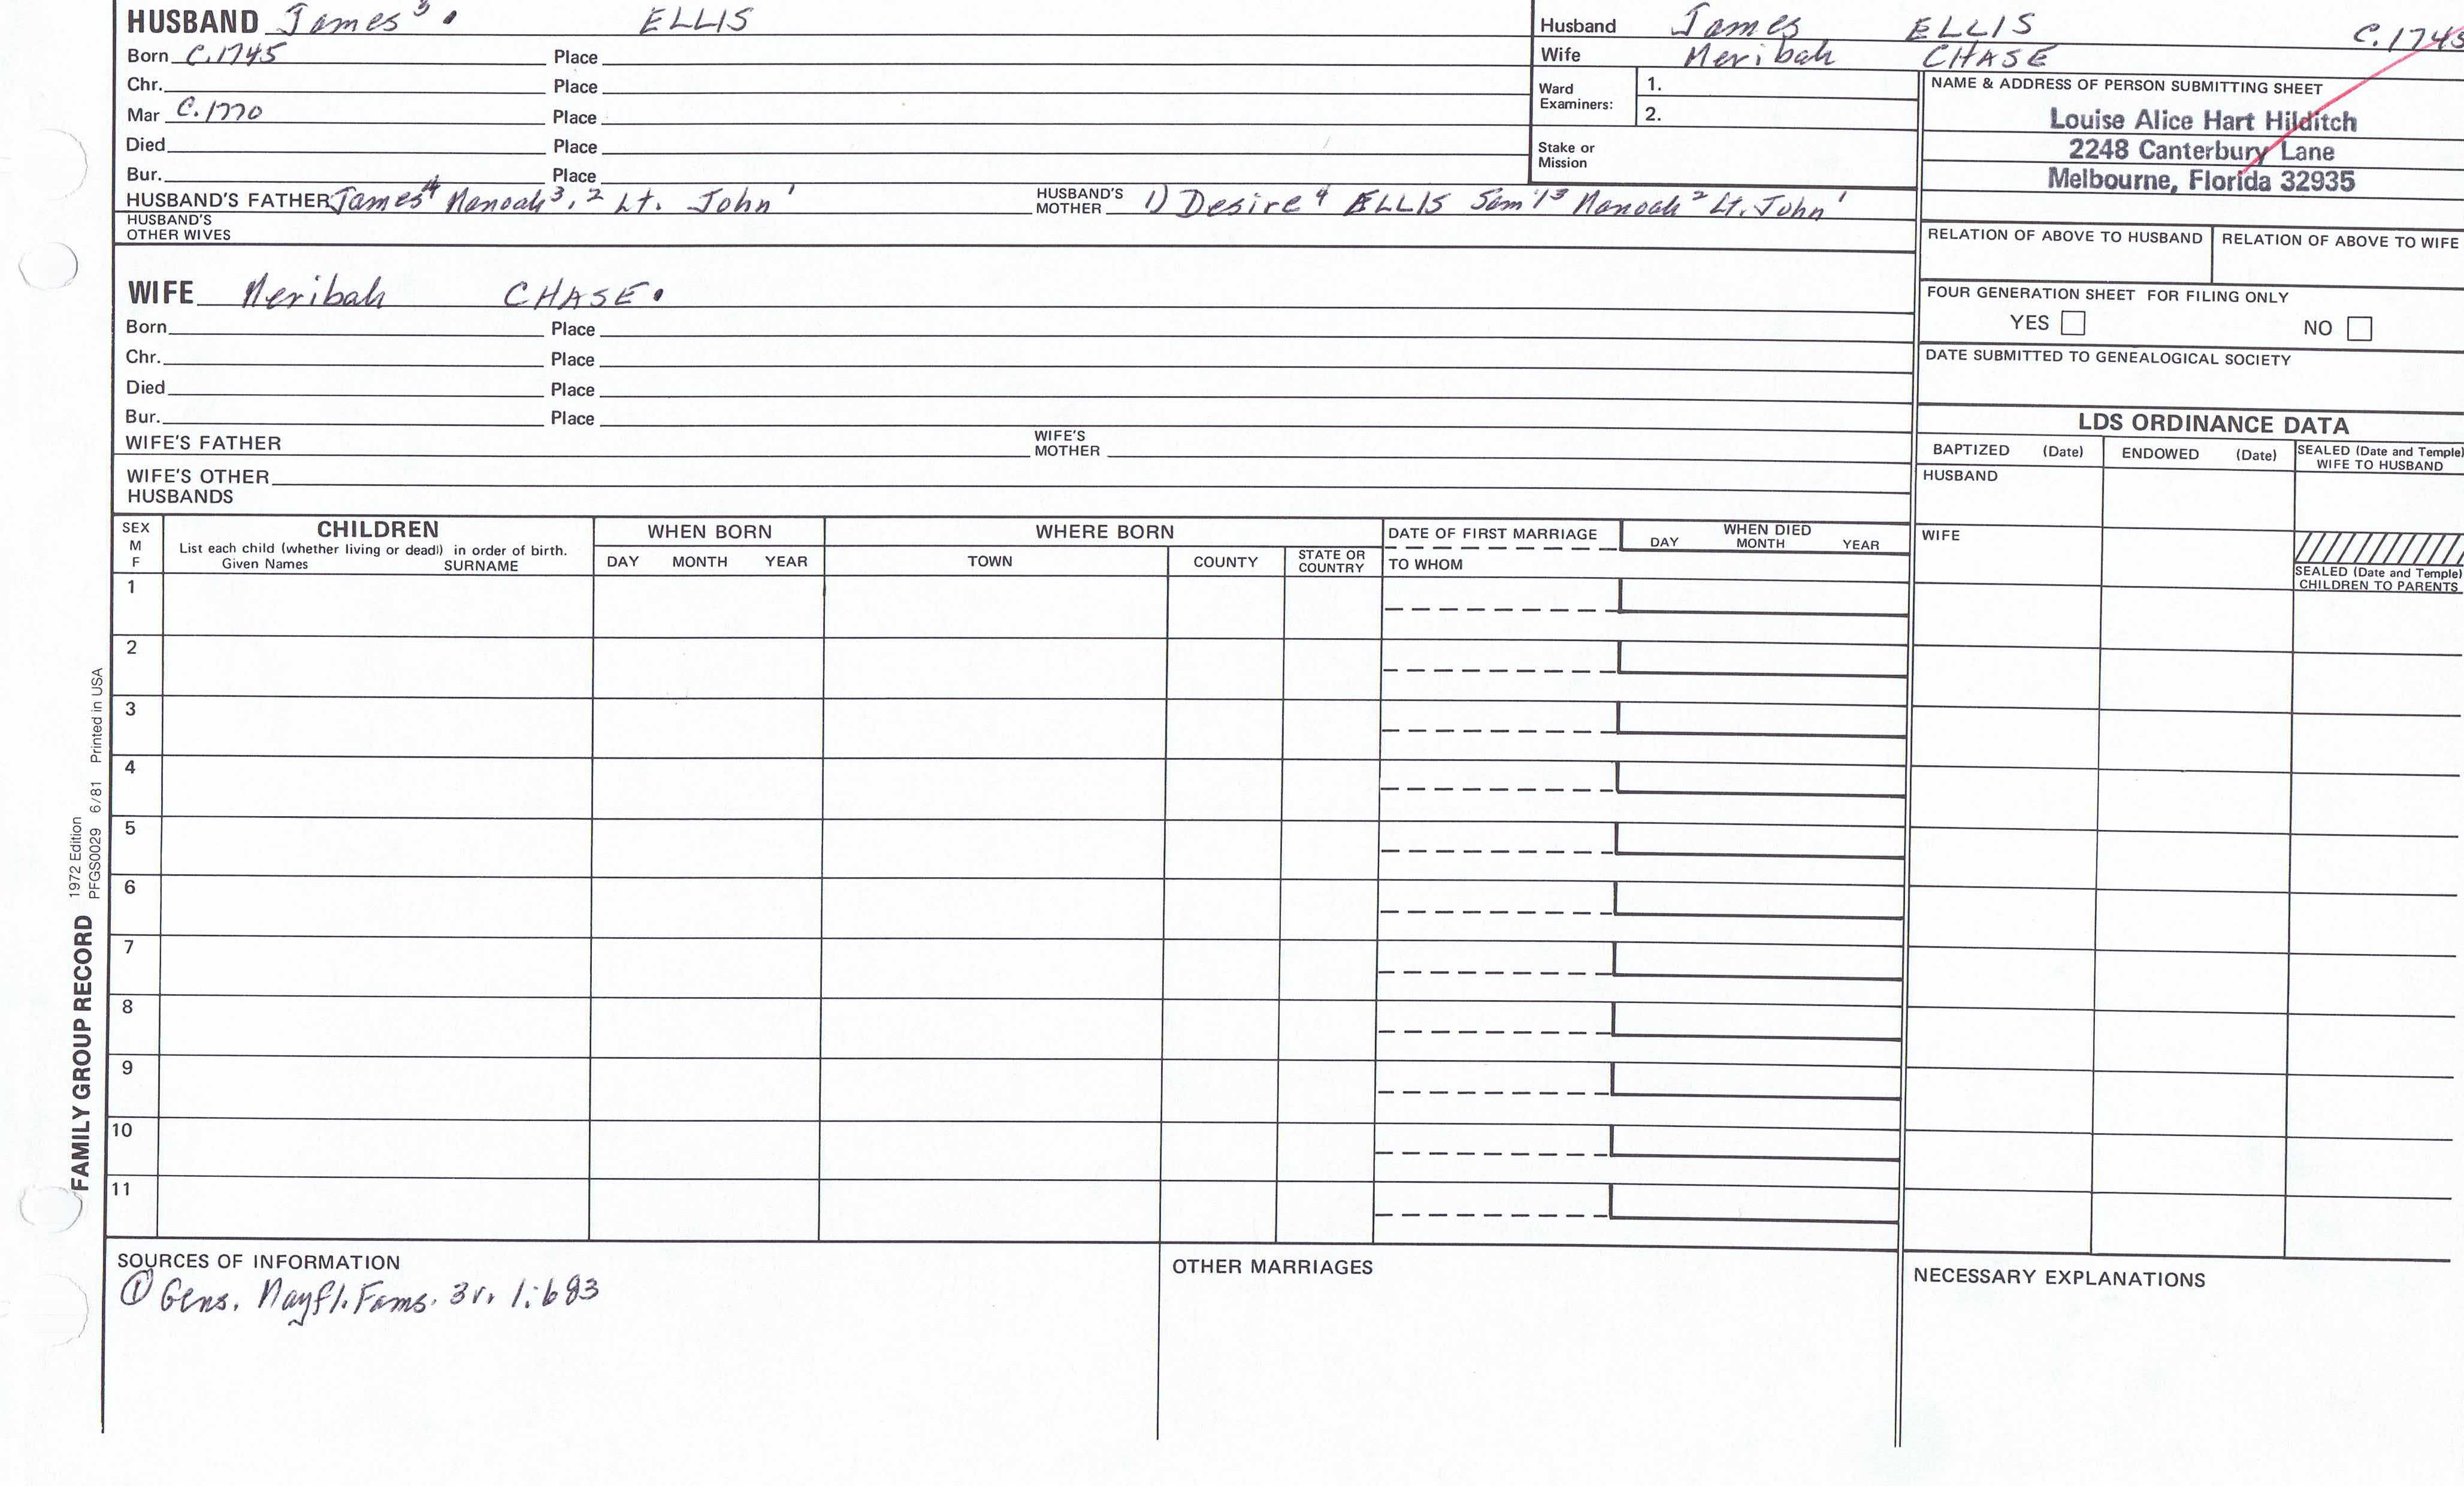 HUSBAND James 5. ELLIS
Born C.1745 Place
Chr. Place
Mar C.1770 Place
Died Place
Bur. Place
HUSBAND'S FATHER James4 Manoah3,2 Lt. John1 HUSBAND'S MOTHER 1) Desire4 ELLIS Sam'l3 Manoah2 Lt. John1
HUSBAND'S OTHER WIVES
Husband James ELLIS C.1745
Wife Meribah CHASE
Ward Examiners: 1.
2.
Stake or Mission
NAME & ADDRESS OF PERSON SUBMITTING SHEET
Louise Alice Hart Hilditch
2248 Canterbury Lane
Melbourne, Florida 32935
RELATION OF ABOVE TO HUSBAND RELATION OF ABOVE TO WIFE
FOUR GENERATION SHEET FOR FILING ONLY
YES NO
DATE SUBMITTED TO GENEALOGICAL SOCIETY
WIFE Meribah CHASE.
Born Place
Chr. Place
Died Place
Bur. Place
WIFE'S FATHER WIFE'S MOTHER
WIFE'S OTHER HUSBANDS
LDS ORDINANCE DATA
BAPTIZED (Date) ENDOWED (Date) SEALED (Date and Temple) WIFE TO HUSBAND
HUSBAND
WIFE
SEALED (Date and Temple) CHILDREN TO PARENTS
SEX M F
CHILDREN
List each child (whether living or dead) in order of birth.
Given Names SURNAME
WHEN BORN
DAY MONTH YEAR
WHERE BORN
TOWN COUNTY STATE OR COUNTRY
DATE OF FIRST MARRIAGE
TO WHOM
WHEN DIED
DAY MONTH YEAR
1
2
3
4
5
6
7
8
9
10
11
FAMILY GROUP RECORD
1972 Edition
PFGS0029 6/81 Printed in USA
SOURCES OF INFORMATION
① Gens. Mayfl. Fams. 3v. 1:683
OTHER MARRIAGES
NECESSARY EXPLANATIONS